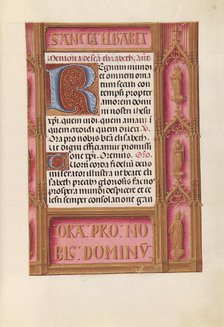 SANCTA ELISABET
Memoria de sctã elizabeth. añ.
Regnum mundi
et omnem ornatum
seculi contempsi
propter
amorem domi
ni nostri iesu
xpi. quem vidi quem amaui i
quem credidi quem dilexi. V.
Ora pro nobis beata elizabeth.
Ut digni efficiamur promissio
ne xpi. Oremus. Oro
corda fidelium
deus miserator illustra et beate eli
sabeth precibus gloriosis fac nos
prospera mundi despicere et ce
lesti semper consolatione gau
ORA PRO NO
BIS DOMINV̄